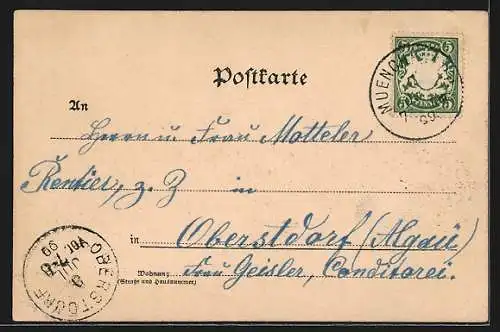 Postkarte
5
MUENCHEN
5 PFENNIG 5
99
An
Herrn u Frau Motteler
Rentier, z. Z in
in Oberstdorf (Algäu)
Wohnung Frau Geisler, Conditorei.
(Straße und Hausnummer)
OBERSTDORF
JUL
99